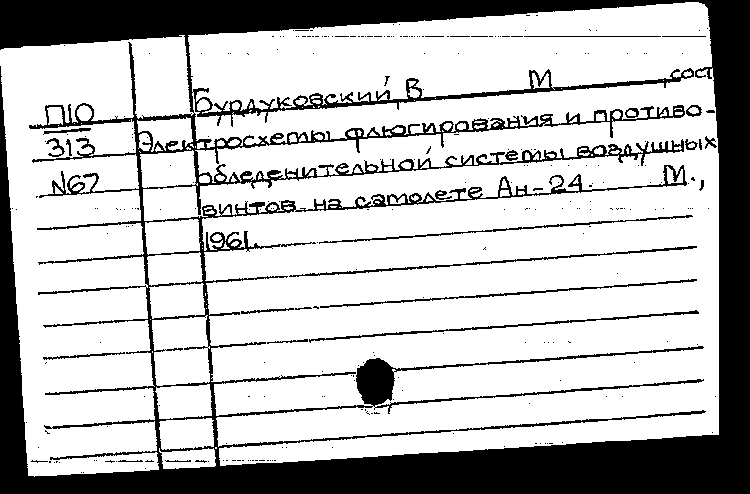 П10 Бурдуковский, В М , сост
313 Электросхемы флюгирования и противо-
N67 обледенительной системы воздушных
винтов на самолете Ан-24. М.,
1961.